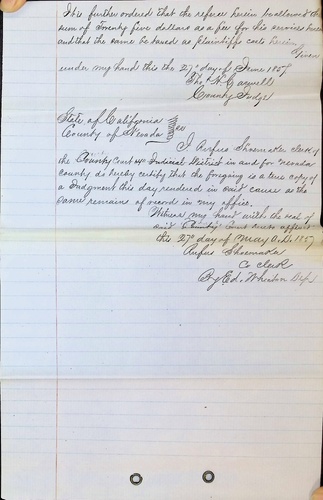 It is further ordered that the referee herein be allowed the
sum of Twenty five dollars as a fee for his services herein
and that the same be taxed as plaintiffs costs herein
Given
under my hand this the 27th day of June 1857
Tho. H. Caswell
County Judge
State of California
County of Nevada } ss
I Rufus Shoemaker clerk of
the County Court 14 Judicial District in and for Nevada
County do hereby certify that the forgoing is a true copy of
a Judgment this day rendered in said cause as the
same remains of record in my office.
Witness my hand with the seal of
said County Court affixed
this 27th day of May A.D. 1857
Rufus Shoemaker
Co Clerk
By Ed. Wheaton Dept